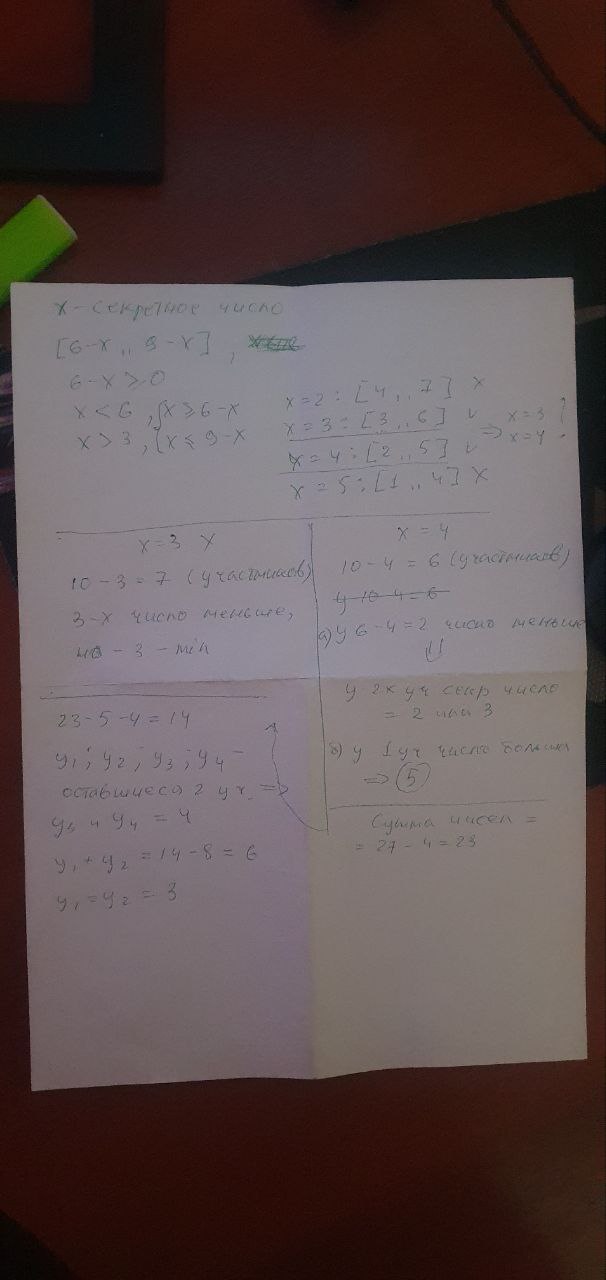 x - секретное число
[6-x .. 9-x] ,
6-x ≥ 0
x < 6 , { x ≥ 6-x
x > 3 , { x ≤ 9-x
x=2 : [4 .. 7] X
x=3 : [3 .. 6] v
x=4 : [2 .. 5] v
x = 5 : [1 .. 4] X
=> x=3
x=4 !
x=3 X
10-3=7 (участников)
3-x число меньше,
но - 3 - min
x = 4
10-4=6 (участников)
y 10-4=6
а) у 6-4=2 число меньше
⇓
у 2х уч секр число
= 2 или 3
б) у 1 уч число больше
=> 5
Сумма чисел =
= 27-4=23
23-5-4=14
y₁ ; y₂ ; y₃ ; y₄ -
оставшиеся 2 уч. =>
y₃ и y₄ = 4
y₁ + y₂ = 14-8 = 6
y₁ = y₂ = 3